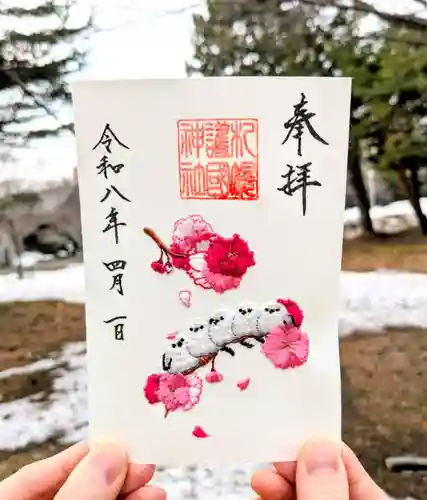 奉拝
札幌
護國
神社
令和八年四月一日